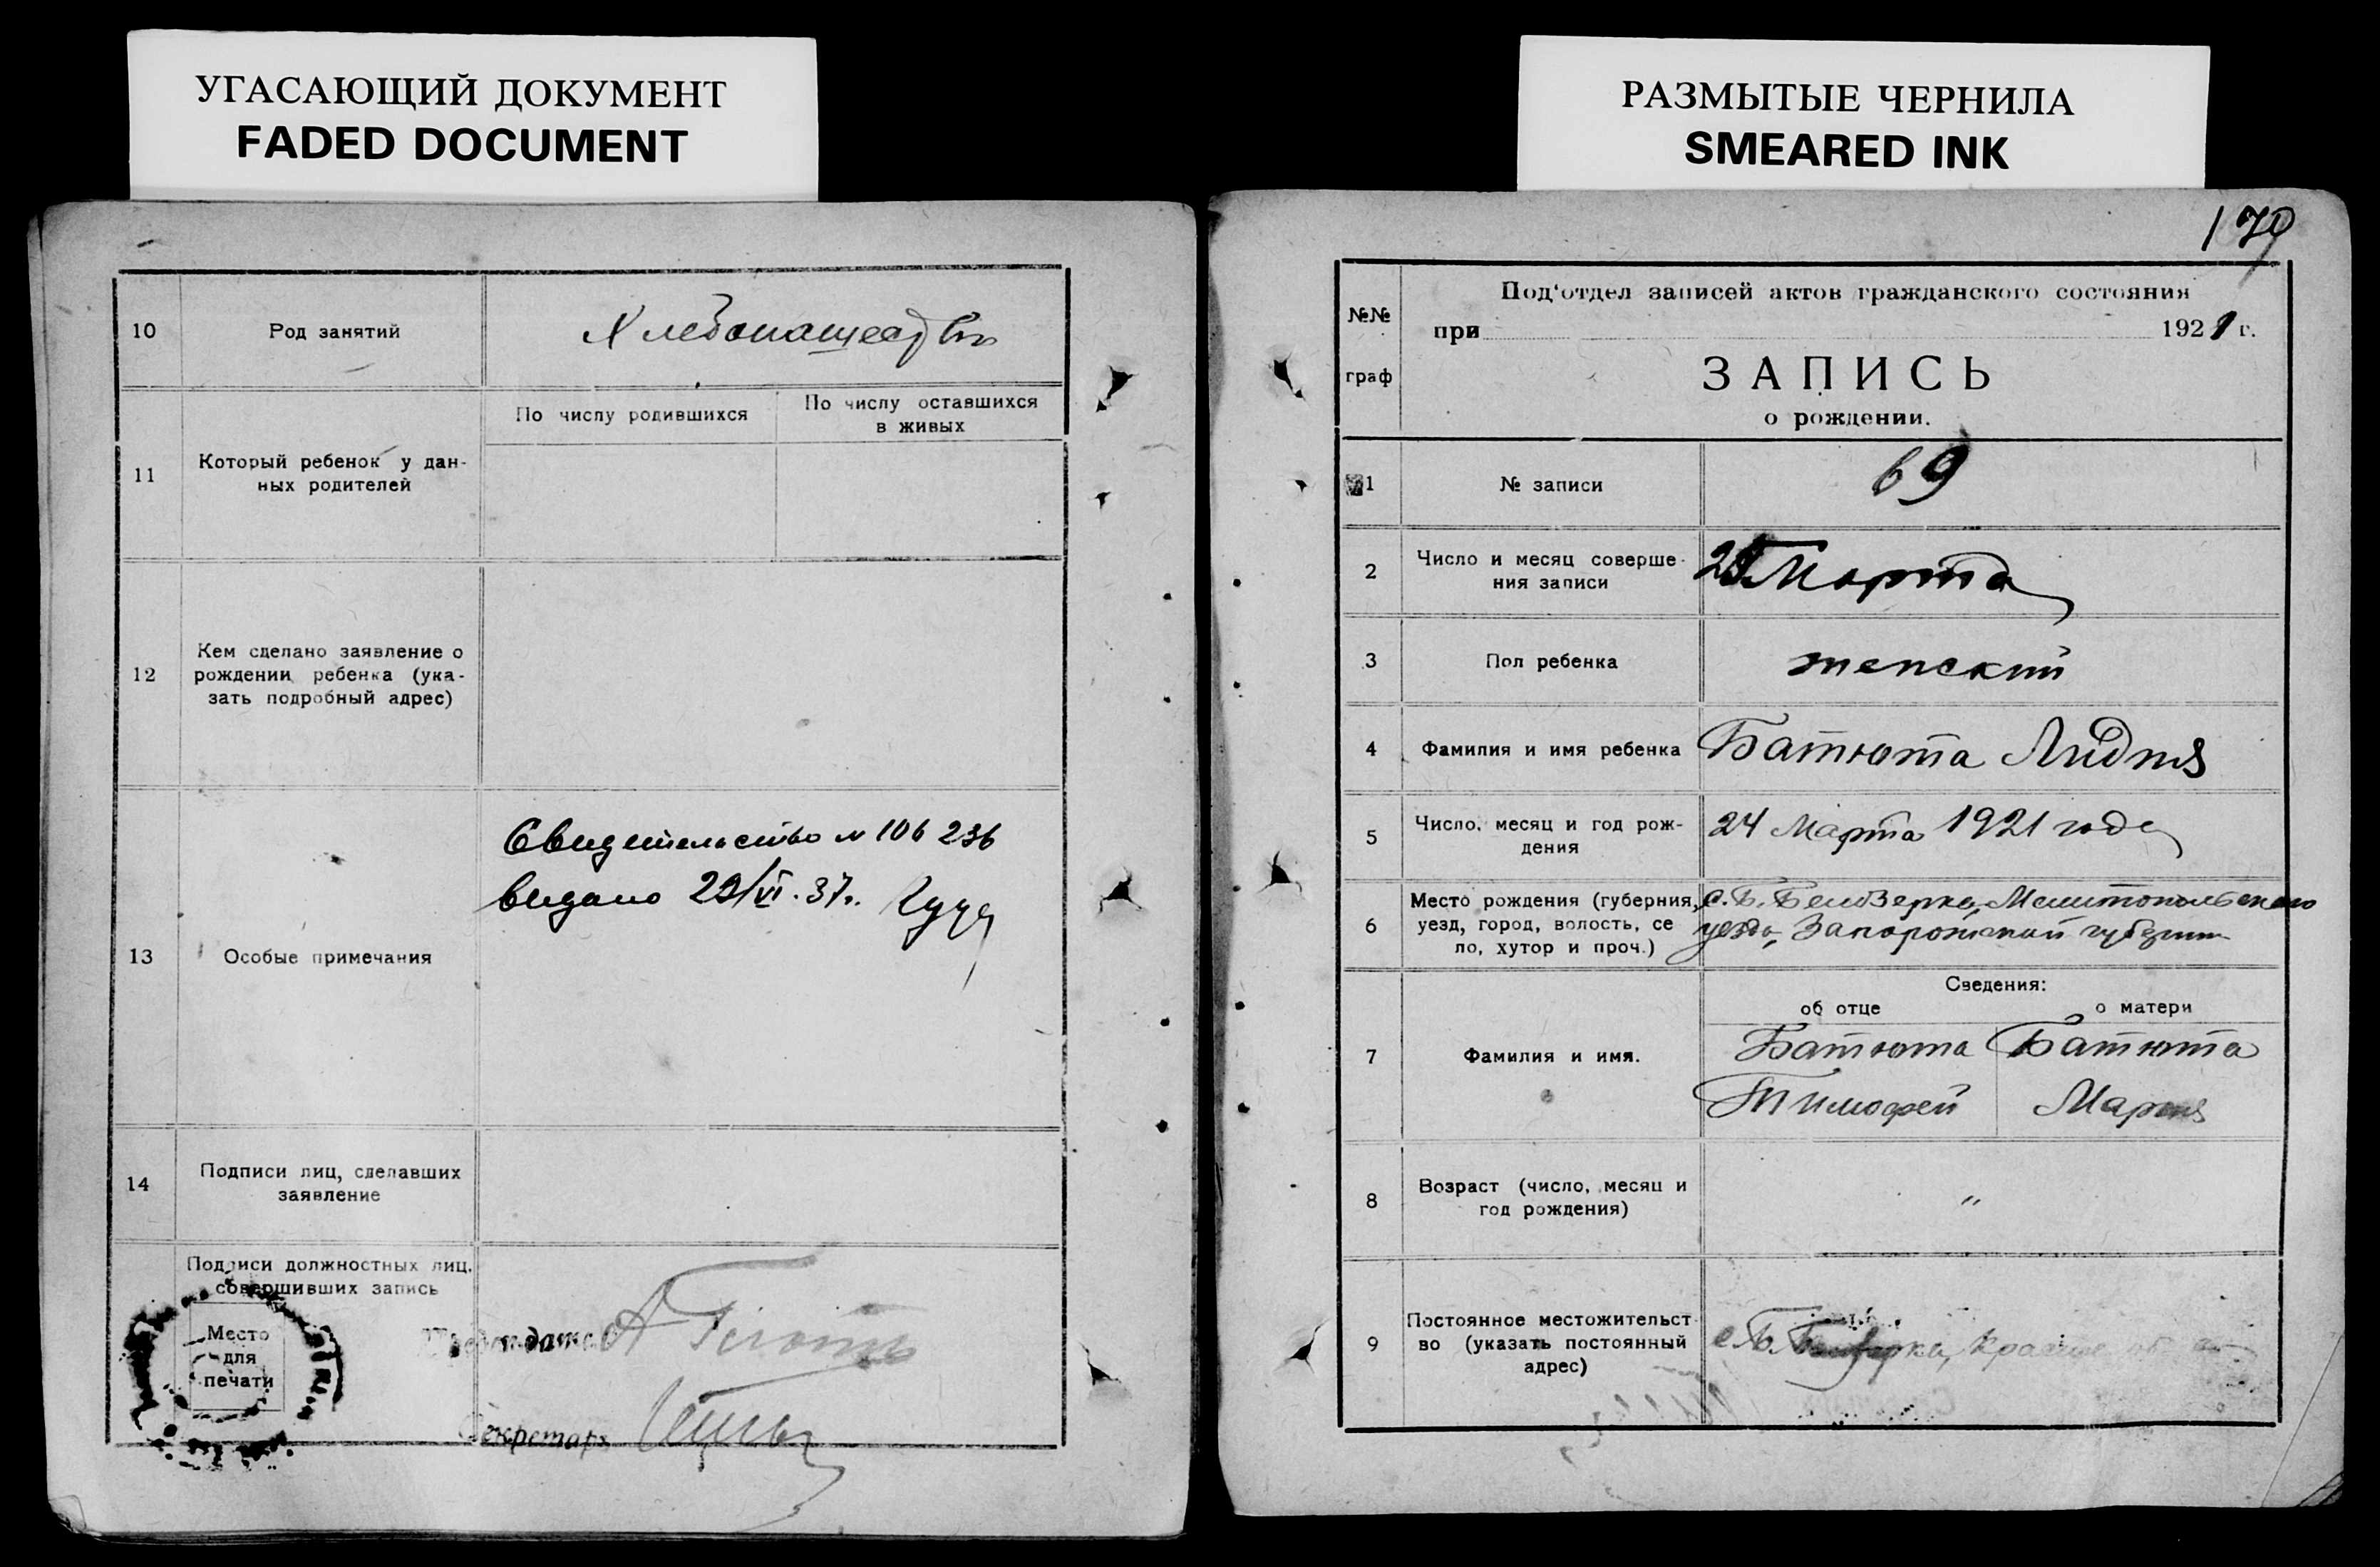 УГАСАЮЩИЙ ДОКУМЕНТ
FADED DOCUMENT
10
Род занятий
Хлебопашество
11
Который ребенок у дан-
ных родителей
По числу родившихся
По числу оставшихся
в живых
12
Кем сделано заявление о
рождении ребенка (ука-
зать подробный адрес)
13
Особые примечания
Свидетельство № 106 236
видано 29/VI.37г.
14
Подписи лиц, сделавших
заявление
Подписи должностных лиц,
совершивших запись
Место
для
печати
Секретарь
РАЗМЫТЫЕ ЧЕРНИЛА
SMEARED INK
179
№№
граф
Под'отдел записей актов гражданского состояния
при 1921 г.
ЗАПИСЬ
о рождении.
1
№ записи
69
2
Число и месяц соверше-
ния записи
Марта
3
Пол ребенка
женский
4
Фамилия и имя ребенка
Батюта Лидия
5
Число, месяц и год рож-
дения
24 Марта 1921 года
6
Место рождения (губерния,
уезд, город, волость, се
ло, хутор и проч.)
с. Б. Белозерка, Мелитопольского
уезда, Запорожской губернии
Сведения:
об отце
о матери
7
Фамилия и имя.
Батюта
Тимофей
Батюта
Мария
8
Возраст (число, месяц и
год рождения)
"
9
Постоянное местожительст
во (указать постоянный
адрес)
с. Б. Белозерка,